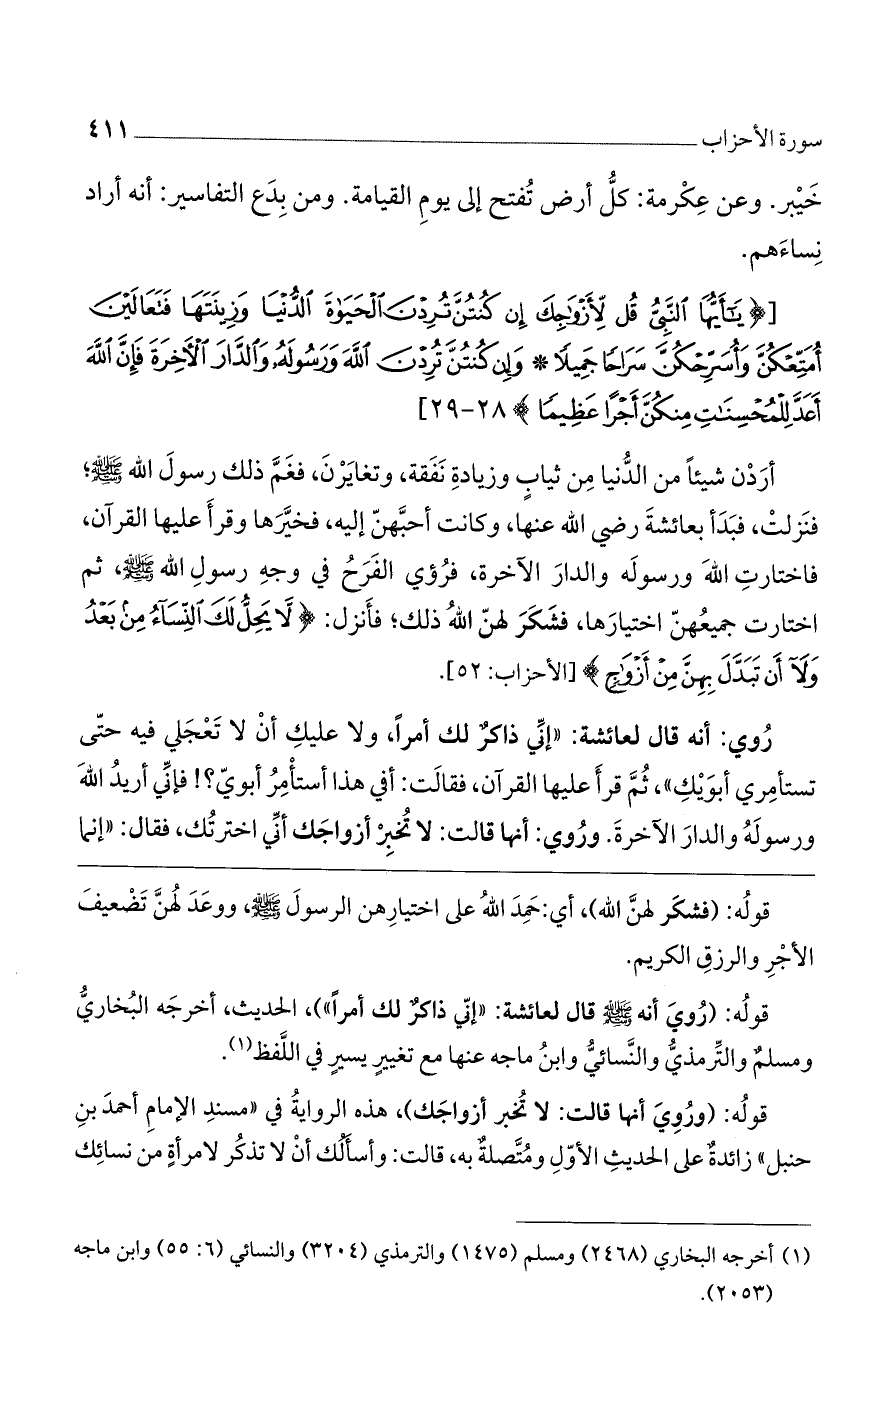 سورة الأحزاب ٤١١
خَيْبر. وعن عِكْرمة: كلُّ أرض تُفتح إلى يومِ القيامة. ومن بِدَع التفاسير: أنه أراد
نِساءَهم.
[﴿ يَـٰٓأَيُّهَا ٱلنَّبِىُّ قُل لِّأَزْوَٰجِكَ إِن كُنتُنَّ تُرِدْنَ ٱلْحَيَوٰةَ ٱلدُّنْيَا وَزِينَتَهَا فَتَعَالَيْنَ
أُمَتِّعْكُنَّ وَأُسَرِّحْكُنَّ سَرَاحًا جَمِيلًا * وَإِن كُنتُنَّ تُرِدْنَ ٱللَّهَ وَرَسُولَهُۥ وَٱلدَّارَ ٱلْـَٔاخِرَةَ فَإِنَّ ٱللَّهَ
أَعَدَّ لِلْمُحْسِنَـٰتِ مِنكُنَّ أَجْرًا عَظِيمًا ﴾ ٢٨-٢٩]
أرَدْن شيئاً من الدُّنيا مِن ثيابٍ وزيادةِ نَفَقة، وتغايَرْنَ، فغَمَّ ذلك رسولَ الله ﷺ؛
فنَزلتْ، فبَدَأ بعائشةَ رضي الله عنها، وكانت أحبَّهنّ إليه، فخيَّرَها وقرأَ عليها القرآن،
فاختارتِ اللهَ ورسولَه والدارَ الآخرة، فرُؤي الفَرَحُ في وجهِ رسولِ الله ﷺ، ثم
اختارت جميعُهنّ اختيارَها، فشَكَرَ لهنّ اللهُ ذلك؛ فأَنزل: ﴿ لَّا يَحِلُّ لَكَ ٱلنِّسَآءُ مِنۢ بَعْدُ
وَلَآ أَن تَبَدَّلَ بِهِنَّ مِنْ أَزْوَٰجٍ ﴾ [الأحزاب: ٥٢].
رُوي: أنه قال لعائشة: «إنِّي ذاكرٌ لك أمراً، ولا عليكِ أنْ لا تَعْجَلي فيه حتّى
تستأمِري أبوَيْكِ»، ثُمَّ قرأَ عليها القرآن، فقالَت: أفي هذا أستأْمِرُ أبويّ؟! فإنِّي أريدُ اللهَ
ورسولَهُ والدارَ الآخرةَ. ورُوي: أنها قالت: لا تُخبِرْ أزواجَك أنِّي اخترتُك، فقال: «إنما
قولُه: (فشكَر لهنَّ الله)، أي: حَمِدَ اللهُ على اختيارِهن الرسولَ ﷺ، ووعَدَ لهُنَّ تَضْعيفَ
الأجْرِ والرزقِ الكريم.
قولُه: (رُويَ أنه ﷺ قال لعائشة: «إنّي ذاكرٌ لك أمراً»)، الحديث، أخرجَه البُخاريُّ
ومسلمٌ والتِّرمذيُّ والنَّسائيُّ وابنُ ماجه عنها مع تغييرٍ يسيرٍ في اللَّفظ(١).
قولُه: (ورُوِيَ أنها قالت: لا تُخبر أزواجَك)، هذه الروايةُ في «مسندِ الإمامِ أحمدَ بنِ
حنبل» زائدةٌ على الحديثِ الأوّلِ ومُتَّصلةٌ به، قالت: وأسألُك أنْ لا تذكُر لامرأةٍ من نسائِك
(١) أخرجه البخاري (٢٤٦٨) ومسلم (١٤٧٥) والترمذي (٣٢٠٤) والنسائي (٦: ٥٥) وابن ماجه
(٢٠٥٣).